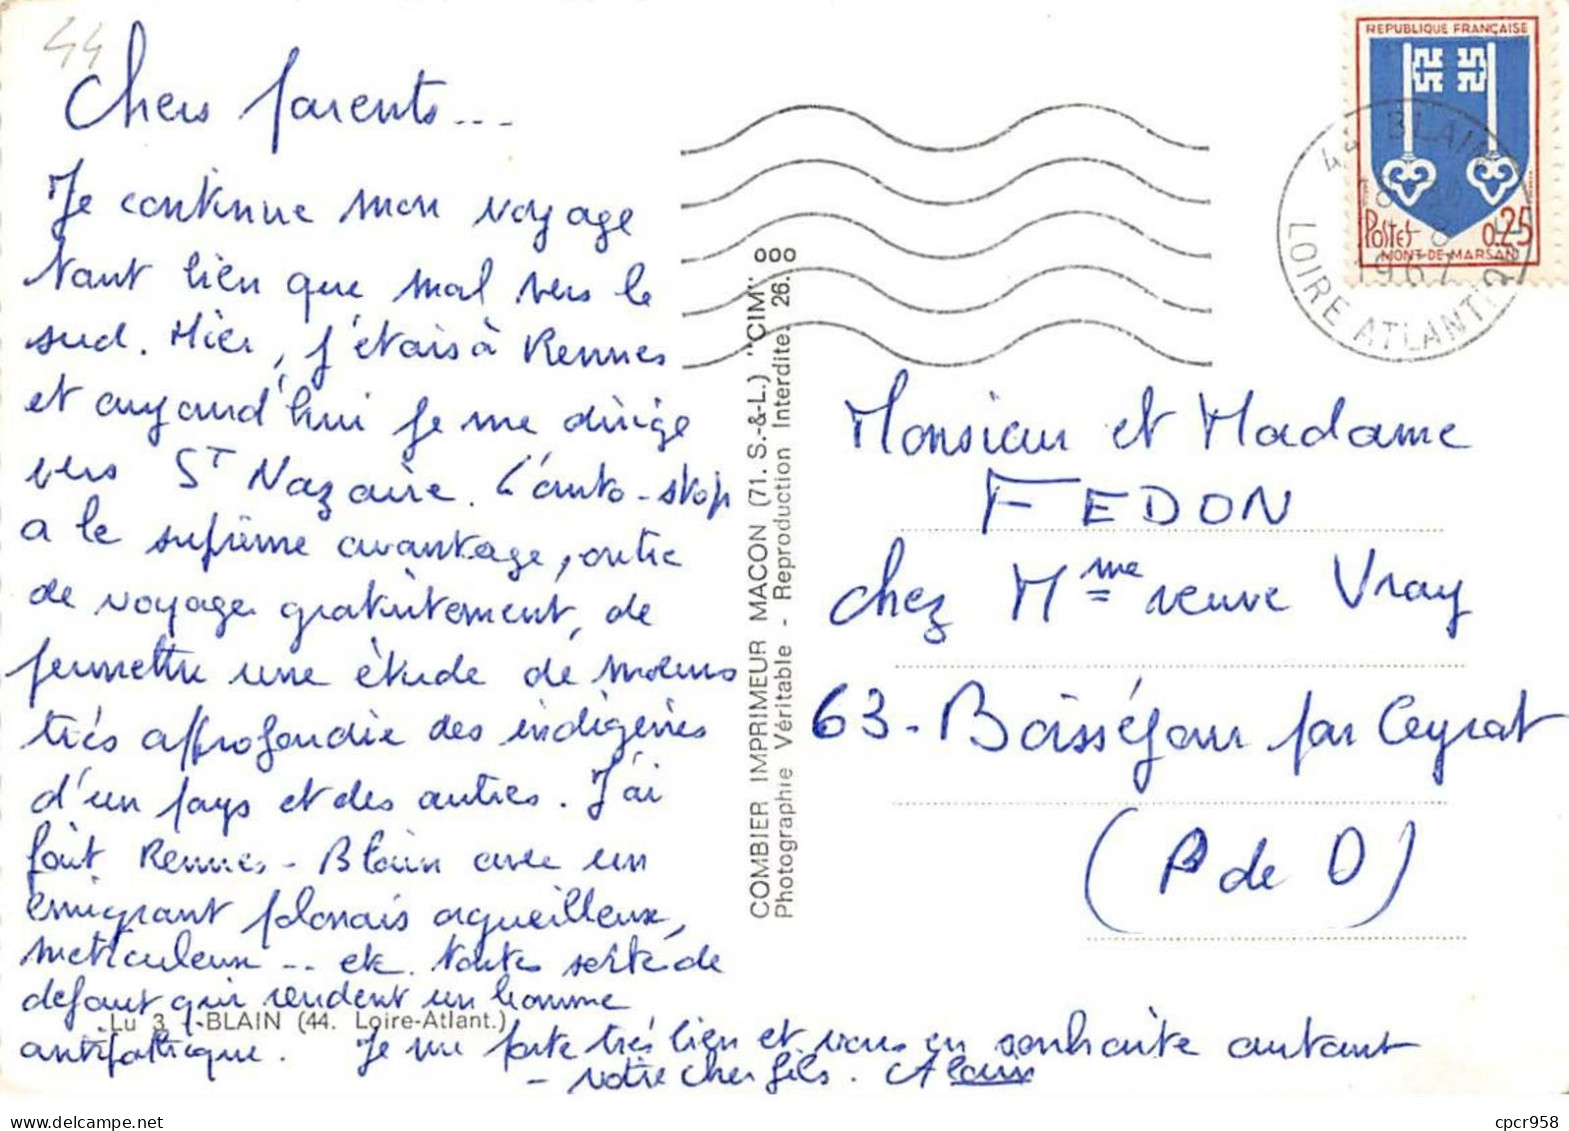 44
Chers parents...
Je continue mon voyage
tant bien que mal vers le
sud. Hier, j'étais à Rennes
et aujourd'hui je me dirige
vers St Nazaire. L'auto-stop
a le suprême avantage, outre
de voyager gratuitement, de
permettre une étude de moeurs
très approfondie des indigènes
d'un pays et des autres. J'ai
fait Rennes - Blain avec un
émigrant polonais orgueilleux,
meticuleux ... etc. toutes sorte de
defaut qui rendent un homme
antipathique. Je me porte très bien et vous en souhaite autant
- votre cher fils. Alain
Lu 3 - BLAIN (44. Loire-Atlant.)
COMBIER IMPRIMEUR MACON (71. S.-&-L.) "CIM"
Photographie Véritable - Reproduction Interdite 26. 000
REPUBLIQUE FRANÇAISE
Postes 0.25
MONT-DE-MARSAN
44 BLAIN
18
8
1967
LOIRE ATLANTIQUE
Monsieur et Madame
FEDON
chez Mme veuve Vray
63 - Boisséjour par Ceyrat
(P de D)
cpcr958